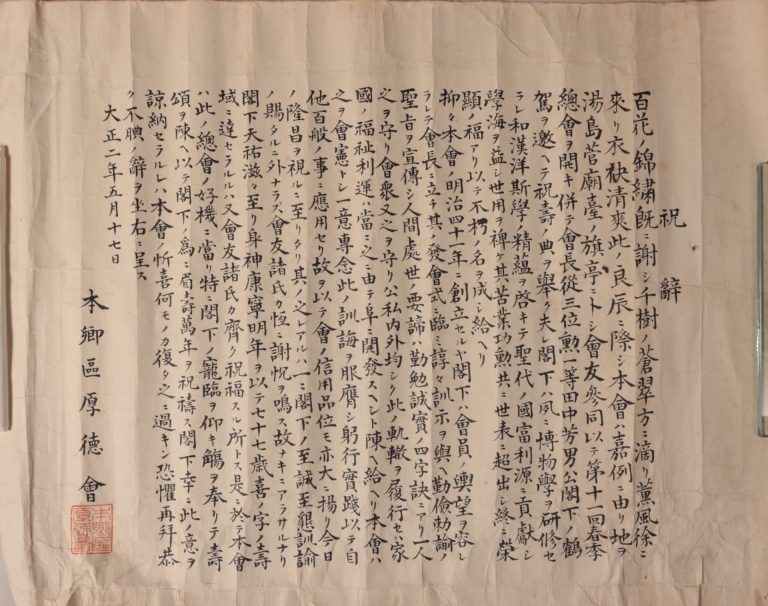 祝辭
百花ノ錦繡既ニ謝シ千樹ノ蒼翠方ニ滴リ薫風徐ニ
來リ衣袂清爽此ノ良辰ニ際シ本會ハ嘉例ニ由リ地ヲ
湯島菅廟臺ノ旗亭ニトシ會友參同以テ第十一回春季
總會ヲ開キ併テ會長從三位勲一等田中芳男公閣下ノ鶴
駕ヲ邀ヘテ祝壽ノ典ヲ舉ク夫レ閣下ハ夙ニ博物學ヲ研修セ
ラレ和漢洋斯學ノ精蘊ヲ啓キテ聖代ノ國富利源ニ貢獻シ
學海ヲ益シ世用ヲ裨ケ其苦業功勲共ニ世表ニ超出シ終ニ榮
顯ノ福アリ以テ不朽ノ名ヲ成シ給ヘリ
抑々本會ノ明治四十一年ニ創立セルヤ閣下ハ會員ノ輿望ヲ容レ
ラレテ會長ニ立チ其ノ發會式ニ臨ミ諄々訓示ヲ與ヘ勤儉勅諭ノ
聖旨ヲ宣傳シ人間處世ノ要諦ハ勤勉誠實ノ四字訣ニアリ一人
之ヲ守リ會衆又之ヲ守リ公私内外均シク此ノ軌轍ヲ履行セハ家
國ノ福祉利運ハ當ニ之ニ由テ阜ニ開發スヘシト陳ヘ給ヘリ本會ハ
之ヲ會憲トシ一意專念此ノ訓誨ヲ服膺シ躬行實踐以テ自
他百般ノ事ニ應用セリ故ヲ以テ會ノ信用品位モ亦大ニ揚リ今日
ノ隆昌ヲ視ルニ至リタリ其ノ之レアルハ一ニ閣下ノ至誠至懇訓諭
ノ賜タルニ外ナラス會友諸氏カ恆ニ謝怳ヲ鳴ス故ナキニアラサルナリ
閣下天祐滋々至リ身神康寧明年ヲ以テ七十七歳喜ノ字ノ壽
域ニ達セラルルハ又會友諸氏カ齊ク祝福スル所トス是ニ於テ本會
ハ此ノ總會ノ好機ニ當リ特ニ閣下ノ寵臨ヲ仰キ觴ヲ奉リテ壽
頌ヲ陳ヘ以テ閣下ノ爲ニ眉壽萬年ヲ祝禱ス閣下幸ニ此ノ意ヲ
諒納セラルレハ本會ノ忻喜何モノカ復タ之ニ過キン恐懼再拜恭
ク不腆ノ辭ヲ坐右ニ呈ス
大正二年五月十七日
本鄕區厚德會